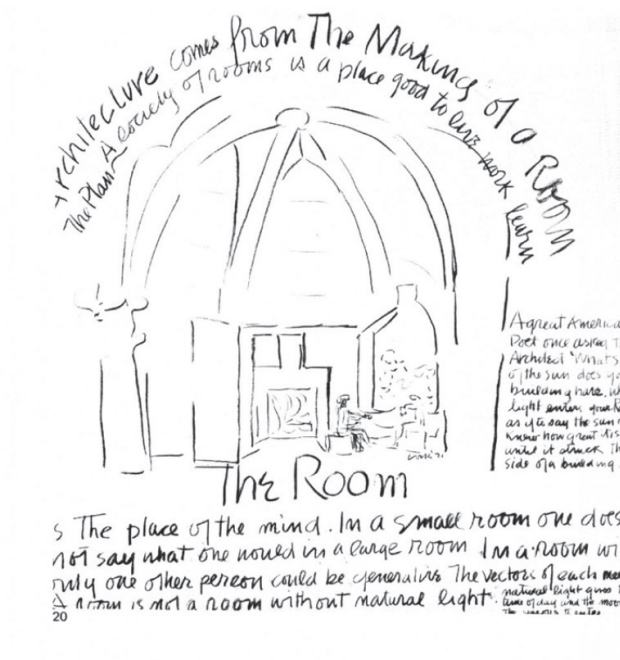 Architecture comes from The Making of a Room
The Plan A society of rooms is a place good to live work learn
A great America
Poet once asked T
Architect 'What s
of the sun does yo
building have. W
light enters your R
as if to say the sun
knew how great it is
until it struck Th
side of a building.
The Room
s The place of the mind. In a small room one does
not say what one would in a large room In a room wi
only one other person could be generative The vectors of each mee
A room is not a room without natural light.
natural light gives
time of day and the moo
20